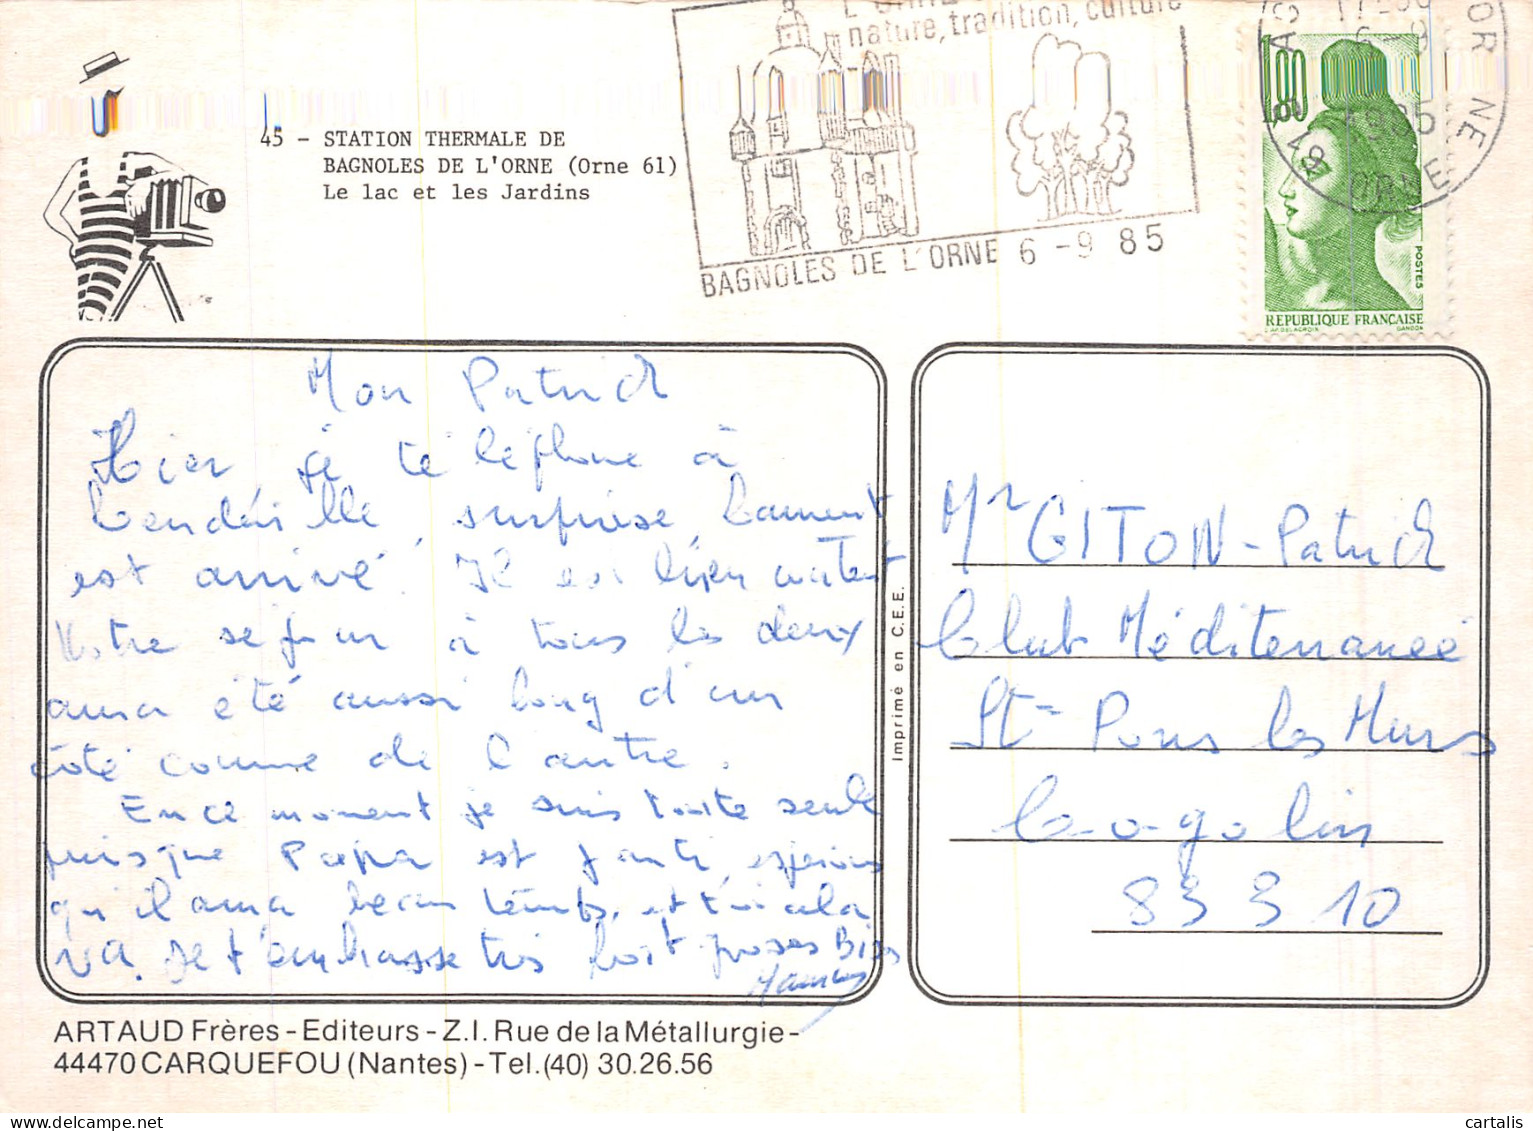 45 - STATION THERMALE DE
BAGNOLES DE L'ORNE (Orne 61)
Le lac et les Jardins
nature, tradition, culture
BAGNOLES DE L'ORNE 6 - 9 85
1,80
POSTES
REPUBLIQUE FRANÇAISE
GANDON
ORNE
Mon Patrick
Hier je téléphone à
surprise,
est arrivé. Il est bien content
Votre séjour à tous les deux
aura été aussi long d'un
côté comme de l'autre.
En ce moment je suis toute seule
puisque Papa est parti, espérons
qu'il aura beau temps, et
va. Je t'embrasse très fort grosses Bises
Maman
Imprimé en C.E.E.
Mr GITON-Patrick
Club Méditerranée
St= Pons les Murs
Co-o-golin
83310
ARTAUD Frères - Editeurs - Z.I. Rue de la Métallurgie -
44470 CARQUEFOU (Nantes) - Tel. (40) 30.26.56
cartalis